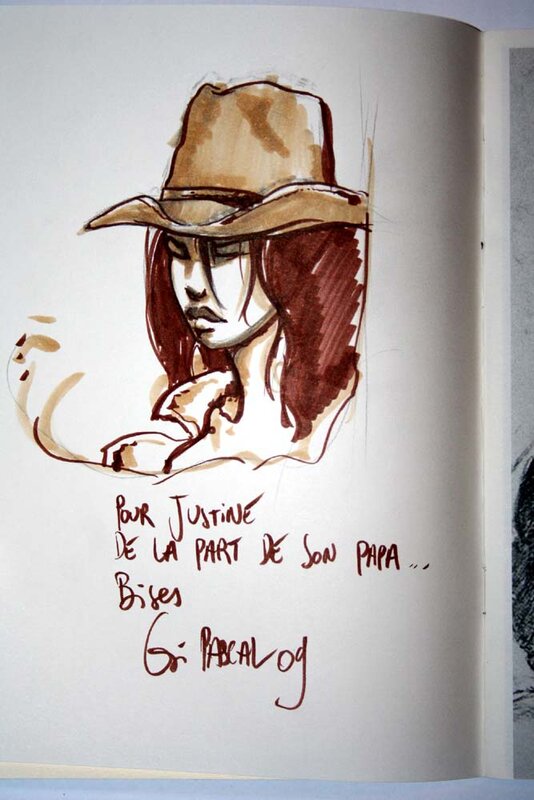 POUR JUSTINE
DE LA PART DE SON PAPA...
Bises
PASCAL 09